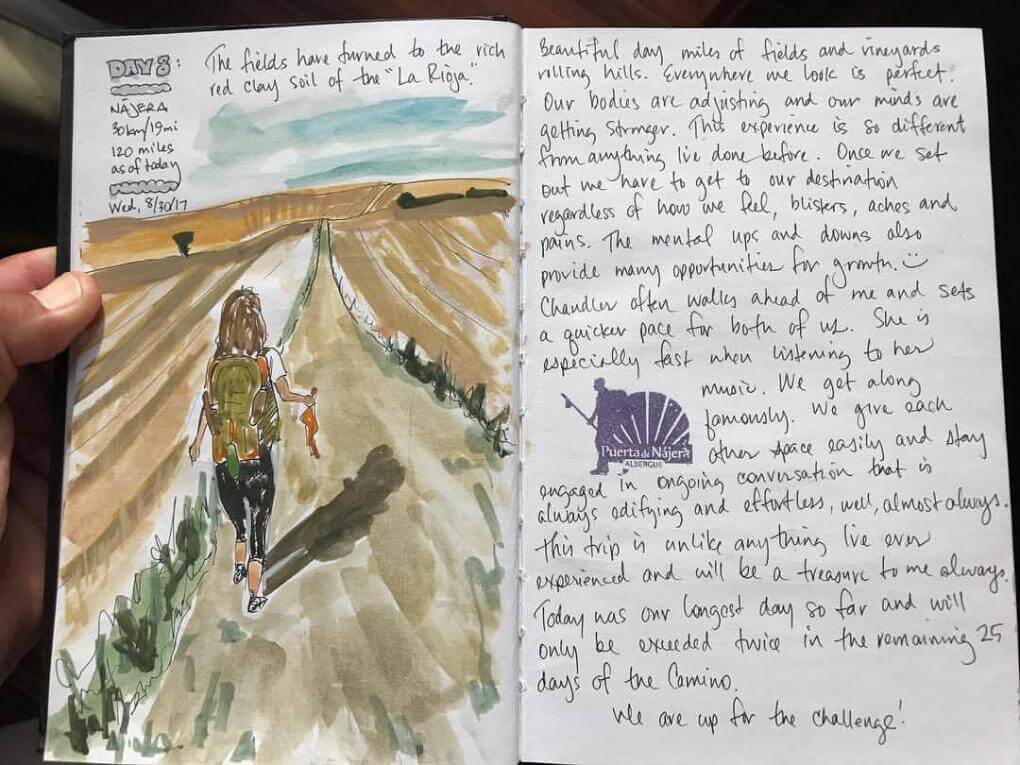 DAY 8:
NÁJERA
30km/19mi
120 miles
as of today
Wed, 8/30/17
The fields have turned to the rich
red clay soil of the "La Rioja."
Beautiful day, miles of fields and vineyards
rolling hills. Everywhere we look is perfect.
Our bodies are adjusting and our minds are
getting stronger. This experience is so different
from anything I've done before. Once we set
out we have to get to our destination
regardless of how we feel, blisters, aches and
pains. The mental ups and downs also
provide many opportunities for growth. ☺
Chandler often walks ahead of me and sets
a quicker pace for both of us. She is
especially fast when listening to her
music. We get along
famously. We give each
other space easily and stay
engaged in ongoing conversation that is
always edifying and effortless, well, almost always.
This trip is unlike anything I've ever
experienced and will be a treasure to me always.
Today was our longest day so far and will
only be exceeded twice in the remaining 25
days of the Camino.
We are up for the challenge!
Puerta de Nájera
ALBERGUE